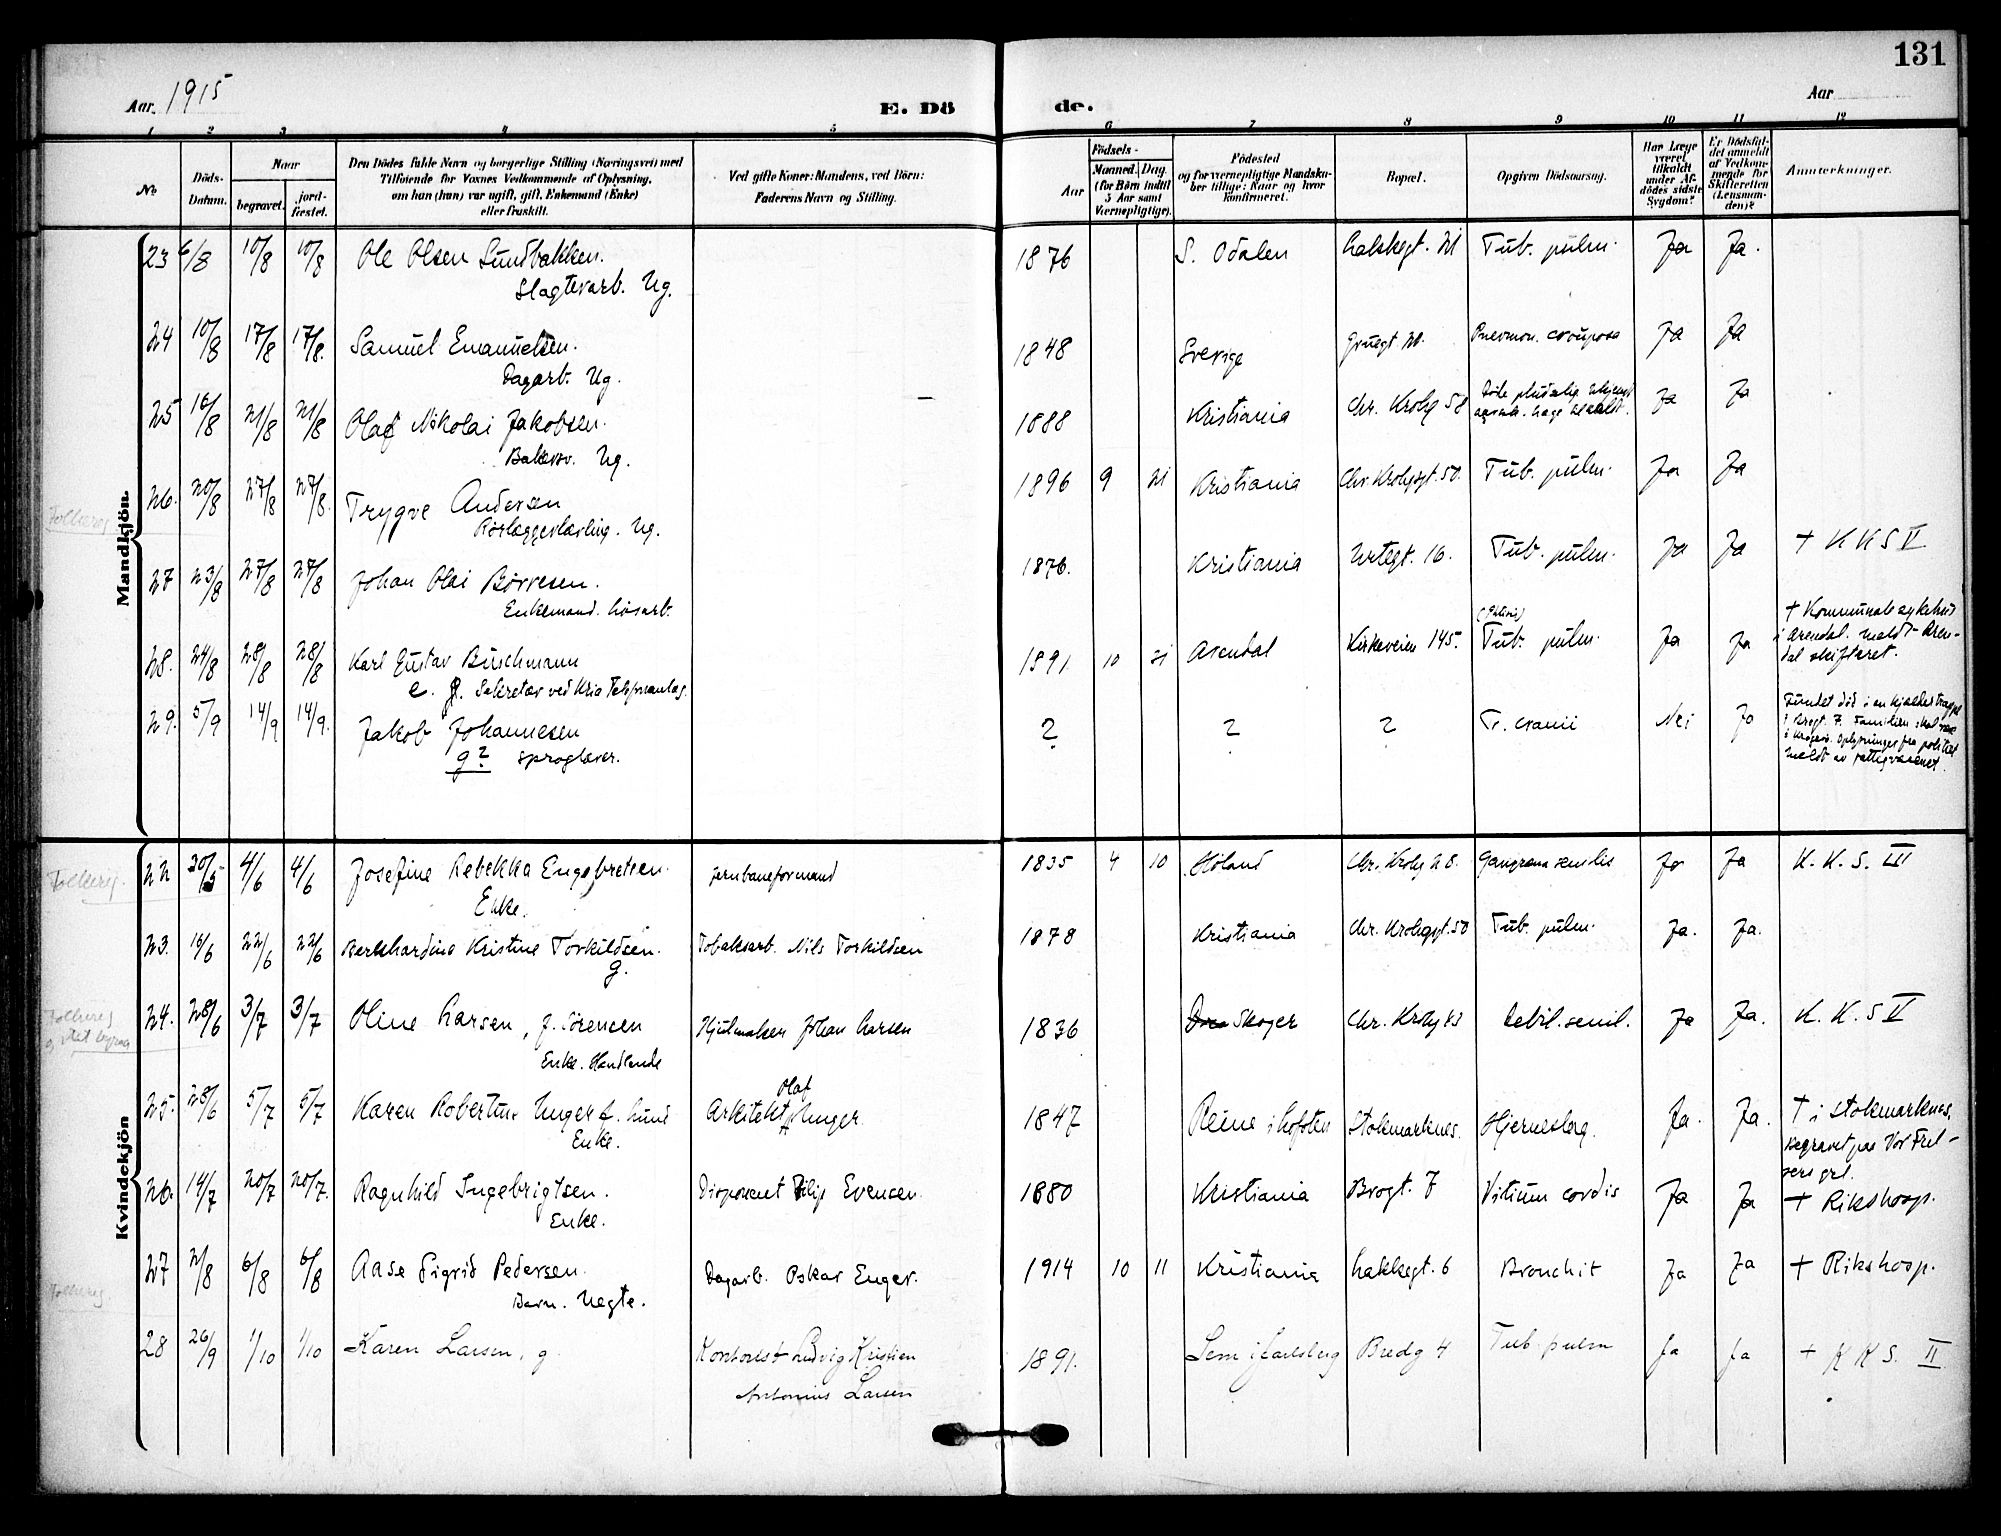 131
Aar. 1915 E. Dö de. Aar
1 2 3 4 5 6 7 8 9 10 11 12
No
Döds-Datum.
Naar begravet. jordfæstet.
Den Dödes fulde Navn og borgerlige Stilling (Næringsvei) med Tilföiende for Voxnes Vedkommende af Oplysning, om han (hun) var ugift, gift, Enkemand (Enke) eller fraskilt.
Ved gifte Koner: Mandens, ved Börn: Faderens Navn og Stilling.
Födsels- Aar Maaned. Dag. (for Börn indtil 5 Aar samt Værnepligtige).
Födested og for værnepligtige Mandskaber tillige: Naar og hvor konfirmeret.
Bopæl.
Opgiven Dödsaarsag.
Har Læge været tilkaldt under Afdödes sidste Sygdom?
Er Dödsfaldet anmeldt af Vedkommende for Skifteretten (Lensmanden)?
Anmerkninger.
Mandkjön.
23 6/8 10/8 10/8 Ole Olsen Sundbakken. 1876 S. Odalen Lakkegt. 21 Tub. pulm. Ja Ja.
Slagterarb. Ug.
24 10/8 17/8 17/8. Samuel Emanuelsen. 1848 Sverige Gruegt 20. Pnevmon. crouposa Ja Ja
Dagarb. Ug.
25 16/8 21/8 21/8 Olaf Nikolai Jakobsen. 1888 Kristiania Chr. Krohg 58 Døde pludselig Ja Ja
Bakersv. Ug.
26. 20/8 27/8 27/8. Trygve Andersen 1896 9 21 Kristiania Chr. Krohgsgt. 50. Tub. pulm. Ja Ja
Rørlæggerlærling. Ug.
27 23/8 27/8 27/8 Johan Olai Börresen. 1876. Kristiania Urtegt. 16. Tub. pulm. Ja Ja + K K S V
Enkemand. Løsarb.
28. 24/8 28/8 28/8 Karl Gustav Buschmann 1891. 10 21 Arendal Kirkeveien 145. (Phtisis) Tub. pulm. Ja Ja + Kommunale sykehus i Arendal. Meldt Arendal skifteret.
e. f. Sekretær ved Kria Telefonanlæg.
29. 5/9 14/9 14/9. Jakob Johannesen ? ? ? Fr. cranii Nei Ja Fundet død i en kjældertrappe i Brogt. 7. Familien skal være i Kragerø. Oplysninger fra politiet Meldt av fattigvæsenet.
g? Sproglærer.
Kvindekjön
Folkereg.
22 30/5 4/6 4/6 Josefine Rebekka Engebretsen. Jernbaneformand 1835 4 10 Høland Chr. Krohg 28. Gangræna senilis Ja Ja K. K. S. III
Enke.
23. 16/6 22/6 22/6 Bernhardine Kristine Torkildsen. Tobaksarb. Nils Torkildsen 1878 Kristiania Chr. Krohgsgt. 50 Tub. pulm. Ja. Ja.
g.
Folkereg
24. 28/6 3/7 3/7 Oline Larsen, f. Sørensen Hjulmaker Johan Larsen 1836 Skoger Chr. Krohg 43 Debil. senil. Ja Ja. K. K. S V
Enke. Handlende
25. 28/6 5/7 5/7 Karen Robertine Unger f. Lund Arkitekt Olaf Unger 1847 Reine i Lofoten Stokmarknes. Hjerneslag. Ja. Ja. + i Stokmarknes, begravet paa Vor Frelsers grl.
Enke.
26. 14/7 20/7 20/7. Ragnhild Ingebrigtsen. Disponent Filip Evensen. 1880 Kristiania Brogt. 7 Vitium cordis Ja Ja + Rikshosp.
Enke.
27 2/8 6/8 6/8 Aase Sigrid Pedersen. Dagarb. Oskar Enger. 1914 10 11 Kristiania Lakkegt. 6 Bronchit Ja Ja + Rikshosp.
Barn. Uegte.
Folkereg
28 26/9 1/10 1/10 Karen Larsen, g Kontorist Ludvig Kristian 1891. Sem i Jarlsberg Bredg 4 Tub pulm Ja Ja + K K S. II
Antonius Larsen